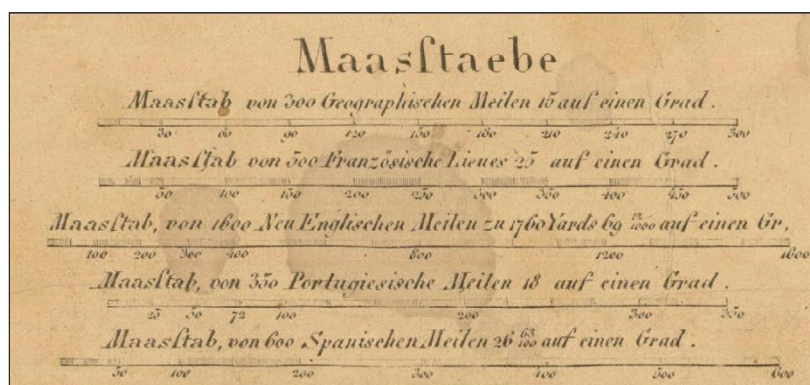 Maasſtaebe
Maasſtab von 300 Geographischen Meilen 15 auf einen Grad.
30 60 90 120 150 180 210 240 270 300
Maasſtab von 500 Französische Lieues 25 auf einen Grad.
50 100 150 200 250 300 350 400 450 500
Maasſtab, von 1600 Neu Englischen Meilen zu 1760 Yards 69 12/1000 auf einen Gr,
100 200 300 400 800 1200 1600
Maasſtab, von 350 Portugiesische Meilen 18 auf einen Grad.
25 50 72 100 200 300 350
Maasſtab, von 600 Spanischen Meilen 26 63/100 auf einen Grad.
50 100 200 300 400 500 600